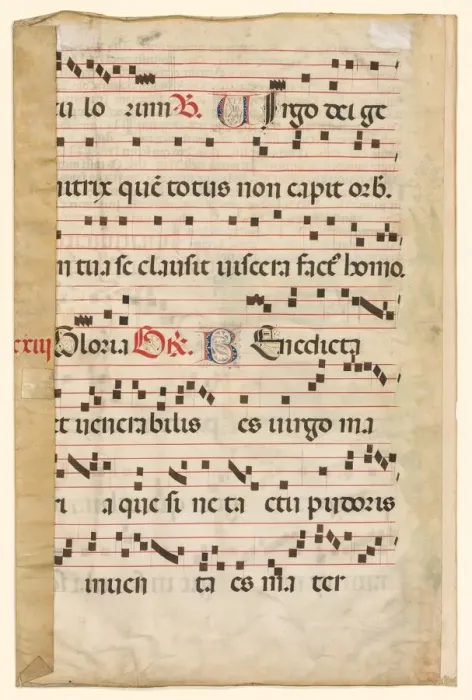 tu lo rum ℟. Uirgo dei ge
nitrix quē totus non capit orb.
n tua se clausit uiscera fact᾽ homo.
cxiij Gloria Or̄. Benedicta
et uenerabilis es uirgo ma
ri a que si ne ta ctu pudoris
inuen ta es ma ter